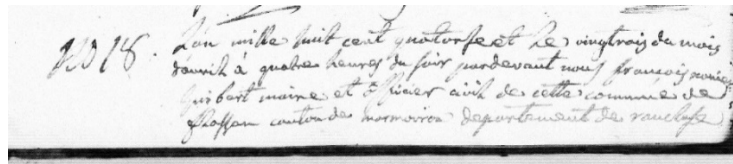 No 18. L'an mille huit cent quatorse et le vingtrois du mois
d'avril à quatre heures du soir pardevant nous françois
Guibert maire et officier civil de cette commune de
canton de mormoiron departement de vaucluse